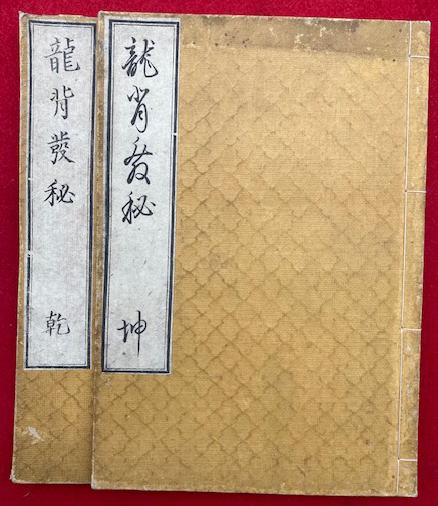 龍背發秘 坤
龍背發秘 乾